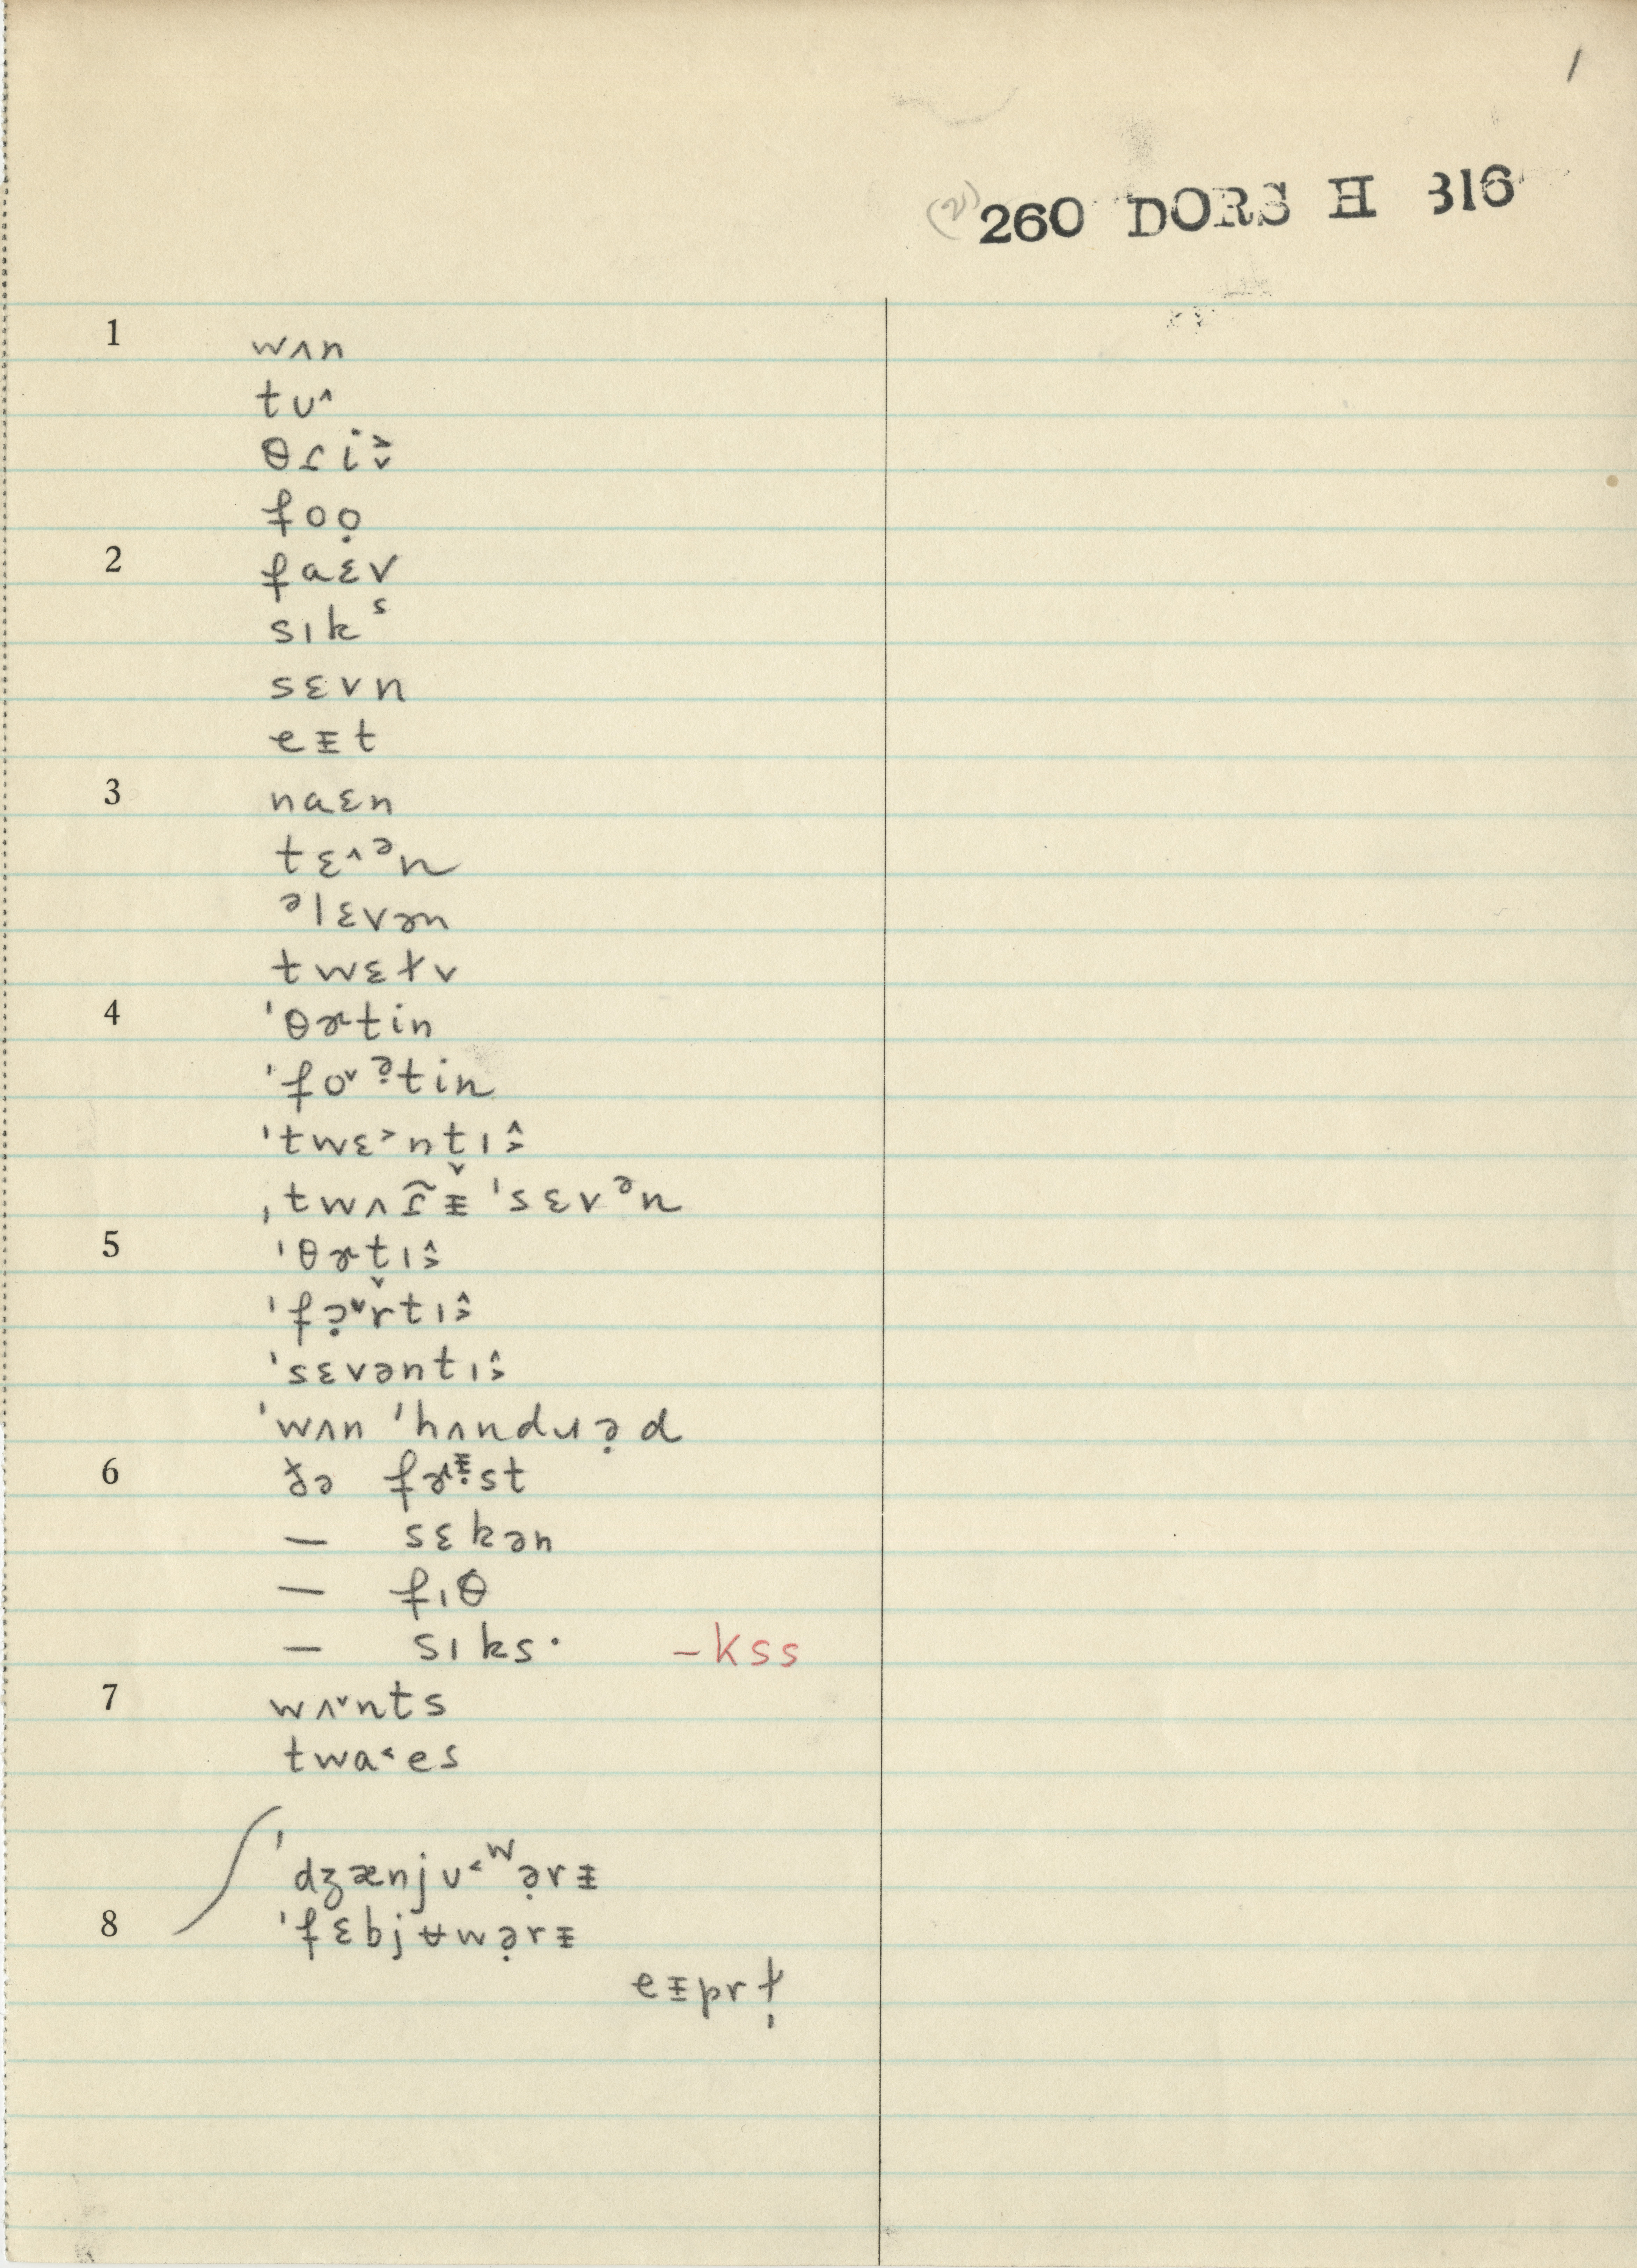 1
(2) 260 DORS H 316
1 wʌn
tʊ˄
θɾi˃˅
foọ
2 faɛv
sɪkˢ
sɛvn
eᵻt
3 naɛn
tɛ˄ᵊn
ᵊlɛvən
twɛɫv
4 ˈθɚtin
ˈfo˅ᵊ̣tin
ˈtwɛ˃nt̬ɪ˄˃
ˌtwʌɾ̃ᵻ ˈsɛvᵊn
5 ˈθɚt̬ɪ˄˃
ˈfɔ̣˅rtɪ˄˃
ˈsɛvəntɪ˄˃
ˈwʌn ˈhʌndɹə̣d
6 ðə fɚᵻ̣st
— sɛkən
— fɪθ
— sɪks· –kss
7 wʌ˅nts
twa˂es
ˈdʒænjʊ˂ʷə̣rᵻ
8 ˈfɛbjʉwə̣rᵻ
eᵻprɫ̩